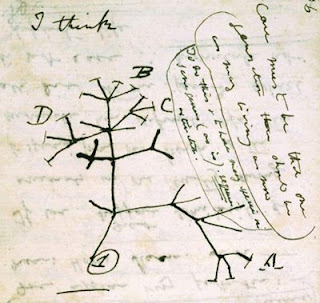 I think
6
Case must be that one
generation then should be
as many living as now
To do this & to have many species in
same genus (as is) requires
extinction
B
C
D
A
1